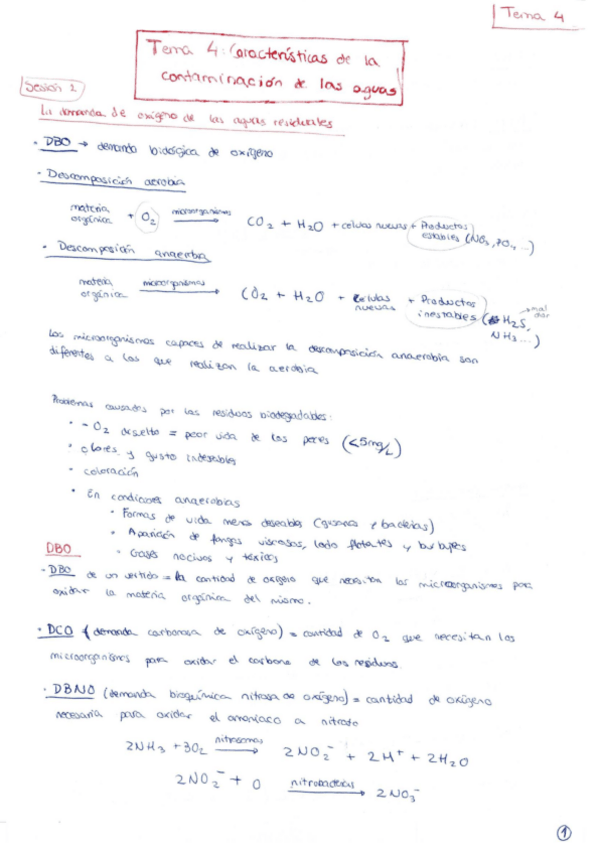 Tema 4
Tema 4: Características de la
contaminación de las aguas
Sesión 2
La demanda de oxígeno de las aguas residuales
· DBO → demanda biológica de oxígeno
· Descomposición aerobia
materia orgánica + O₂ microorganismos → CO₂ + H₂O + células nuevas + Productos estables (NO₃, PO₄, ...)
· Descomposición anaerobia
materia orgánica microorganismos → CO₂ + H₂O + células nuevas + Productos inestables (H₂S, NH₃...) → mal olor
Los microorganismos capaces de realizar la descomposición anaerobia son
diferentes a los que realizan la aerobia
Problemas causados por los residuos biodegradables:
· - O₂ disuelto = peor vida de los peces (<5mg/L)
· olores y gusto indeseables
· coloración
· En condiciones anaerobias
· Formas de vida menos deseables (gusanos y bacterias)
· Aparición de fangos viscosos, lodo flotantes y burbujas
· Gases nocivos y tóxicos
DBO
· DBO de un vertido = la cantidad de oxígeno que necesitan los microorganismos para
oxidar la materia orgánica del mismo.
· DCO (demanda carbonosa de oxígeno) = cantidad de O₂ que necesitan los
microorganismos para oxidar el carbono de los residuos.
· DBNO (demanda bioquímica nitrosa de oxígeno) = cantidad de oxígeno
necesaria para oxidar el amoníaco a nitrato
2NH₃ + 3O₂ nitrosomas → 2NO₂⁻ + 2H⁺ + 2H₂O
2NO₂⁻ + O nitrobacterias → 2NO₃⁻
1